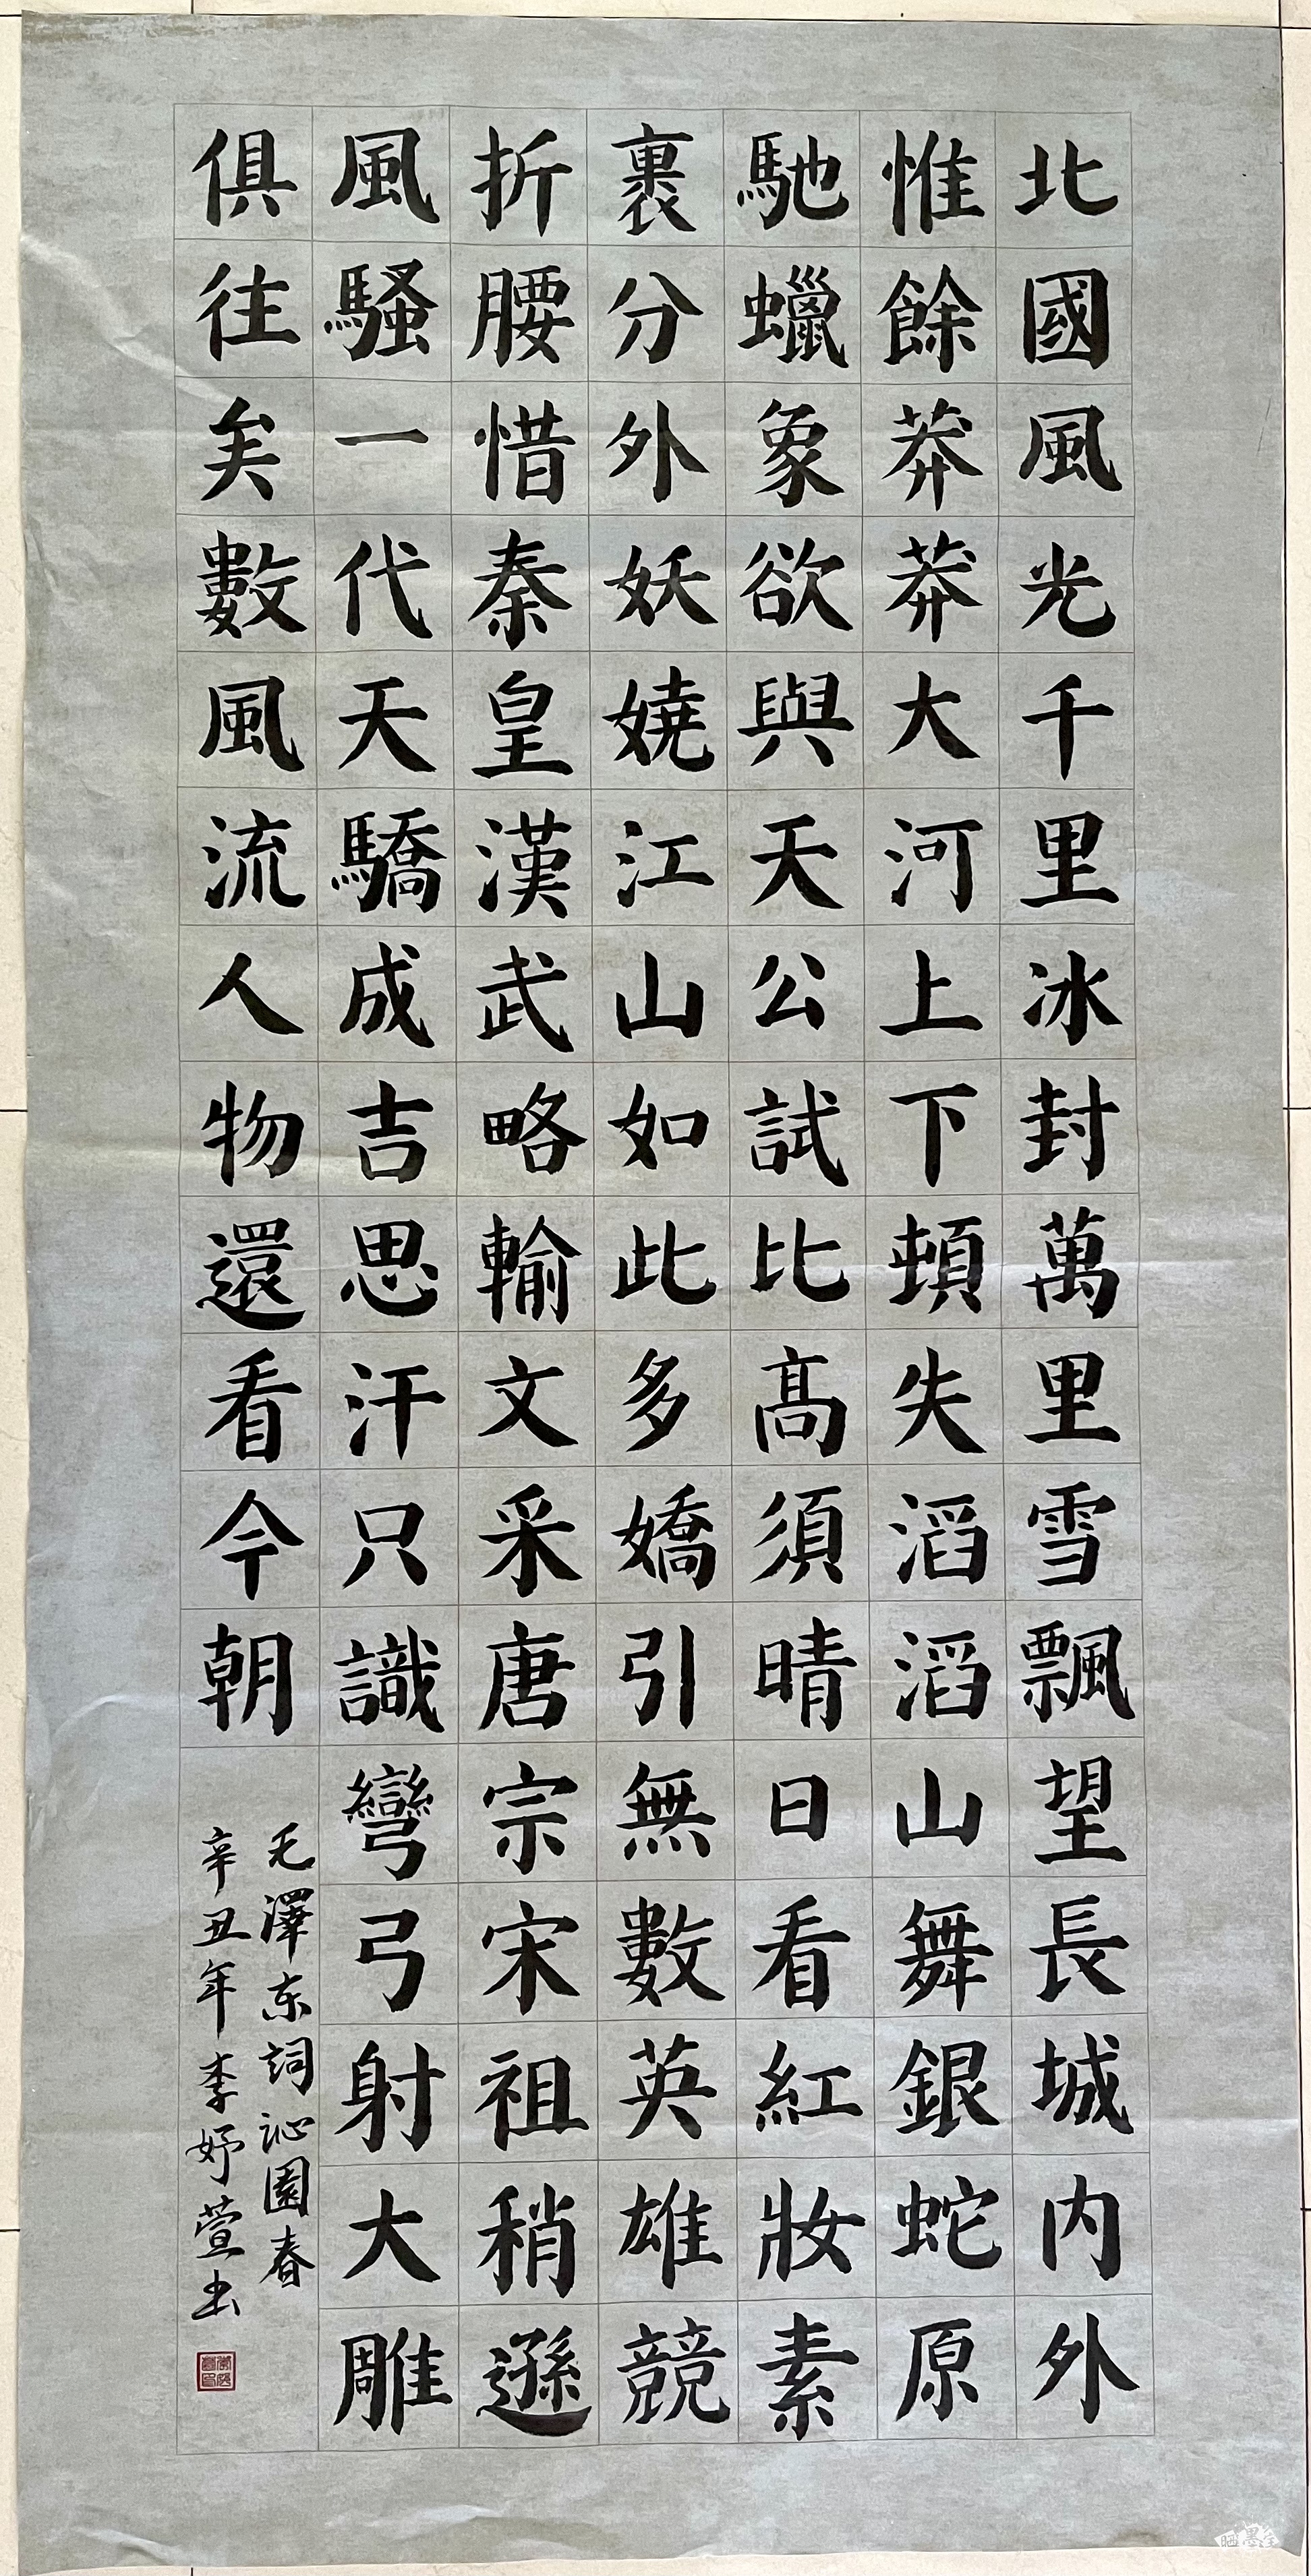 北國風光千里冰封萬里雪飄望長城内外
惟餘莽莽大河上下頓失滔滔山舞銀蛇原
馳蠟象欲與天公試比高須晴日看紅妝素
裹分外妖嬈江山如此多嬌引無數英雄競
折腰惜秦皇漢武略輸文采唐宗宋祖稍遜
風騷一代天驕成吉思汗只識彎弓射大雕
俱往矣數風流人物還看今朝
毛澤东詞沁園春
辛丑年李妤萱书